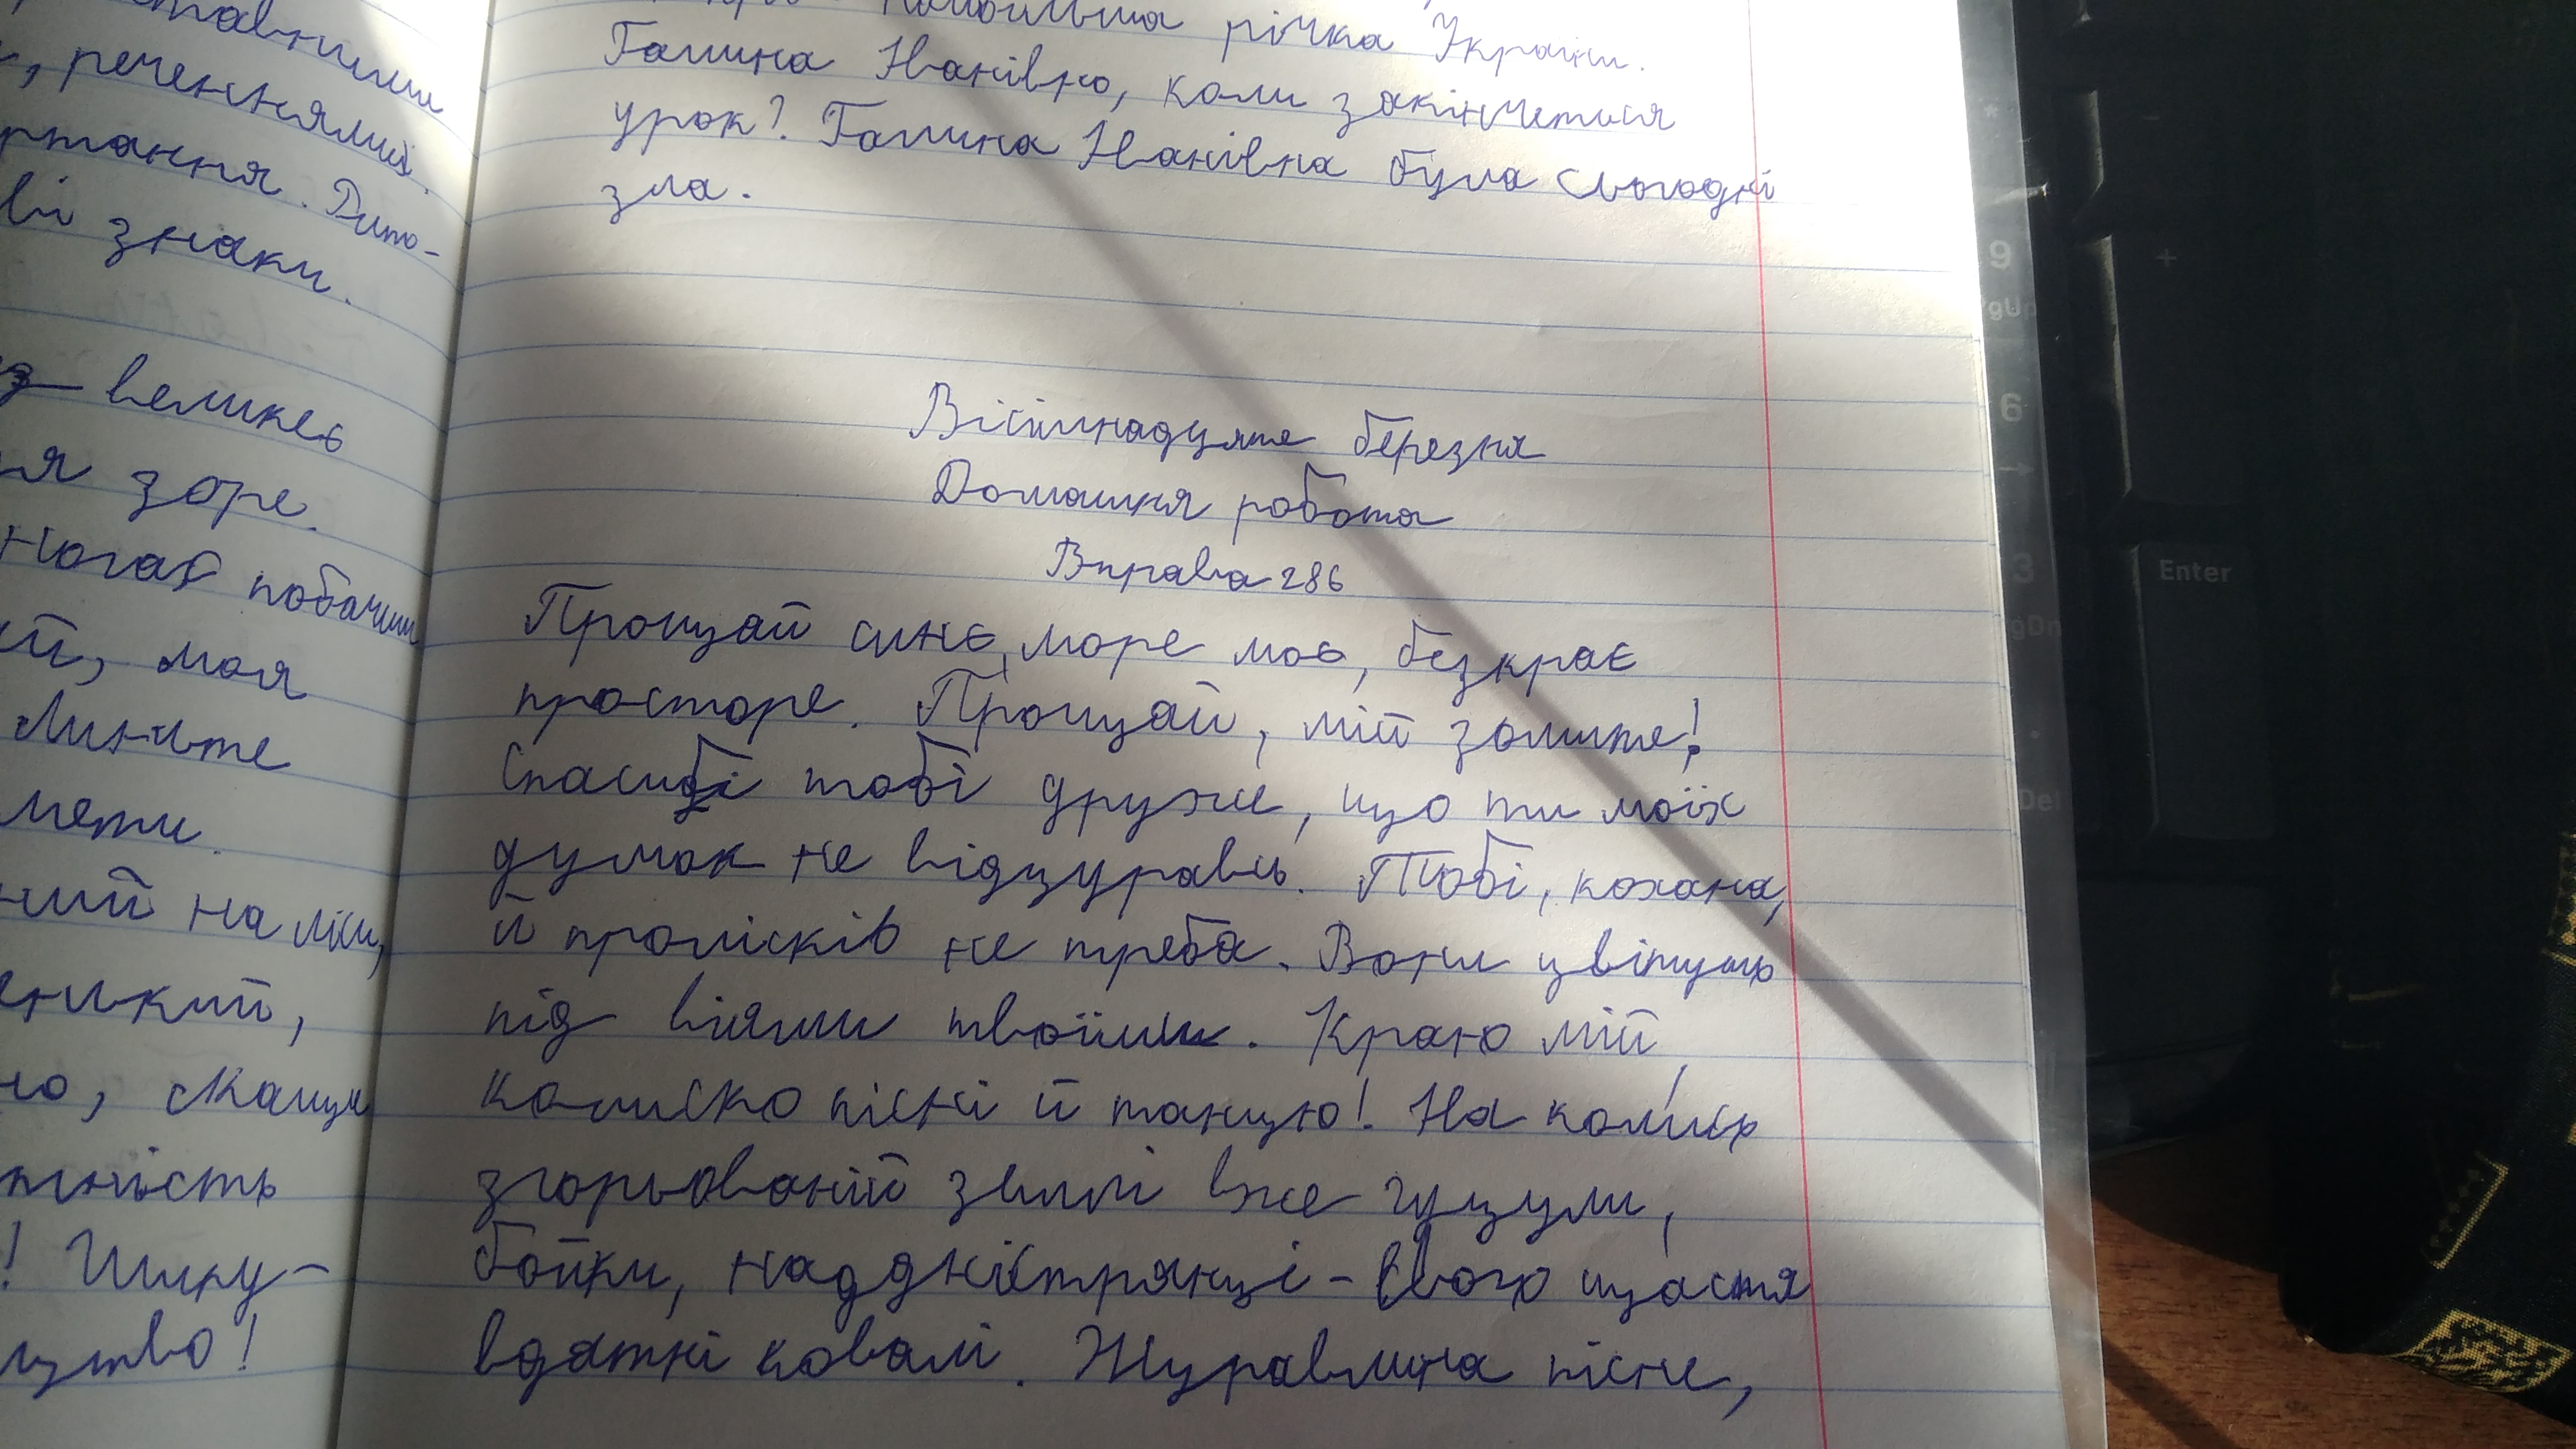 тавними
, реченнями.
ртання. Дито-
ві знаки.
з великеє
ня зоре.
ногах побачиш
ий, моя
Линьте
мети.
ний на ліки,
еникий,
но, скащи
тність
! Шику-
цтво!
найбільша річка України.
Галина Іванівно, коли закінчеться
урок? Галина Іванівна була сьогодні
зла.
Вісімнадцяте березня
Домашня робота
Вправа 286
Прощай синє, море моє, безкрає
просторе. Прощай, мій залите!
Спасибі тобі друже, що ти моїх
думок не відцуравсь. Тобі, кохана,
й пролісків не треба. Вони цвітуть
під віями твоїми. Краю мій,
колиско пісні й танцю! На колись
згорьованій землі вже гуцули,
бойки, наддністрянці - свого щастя
вдятні ковалі. Журавлина пісне,